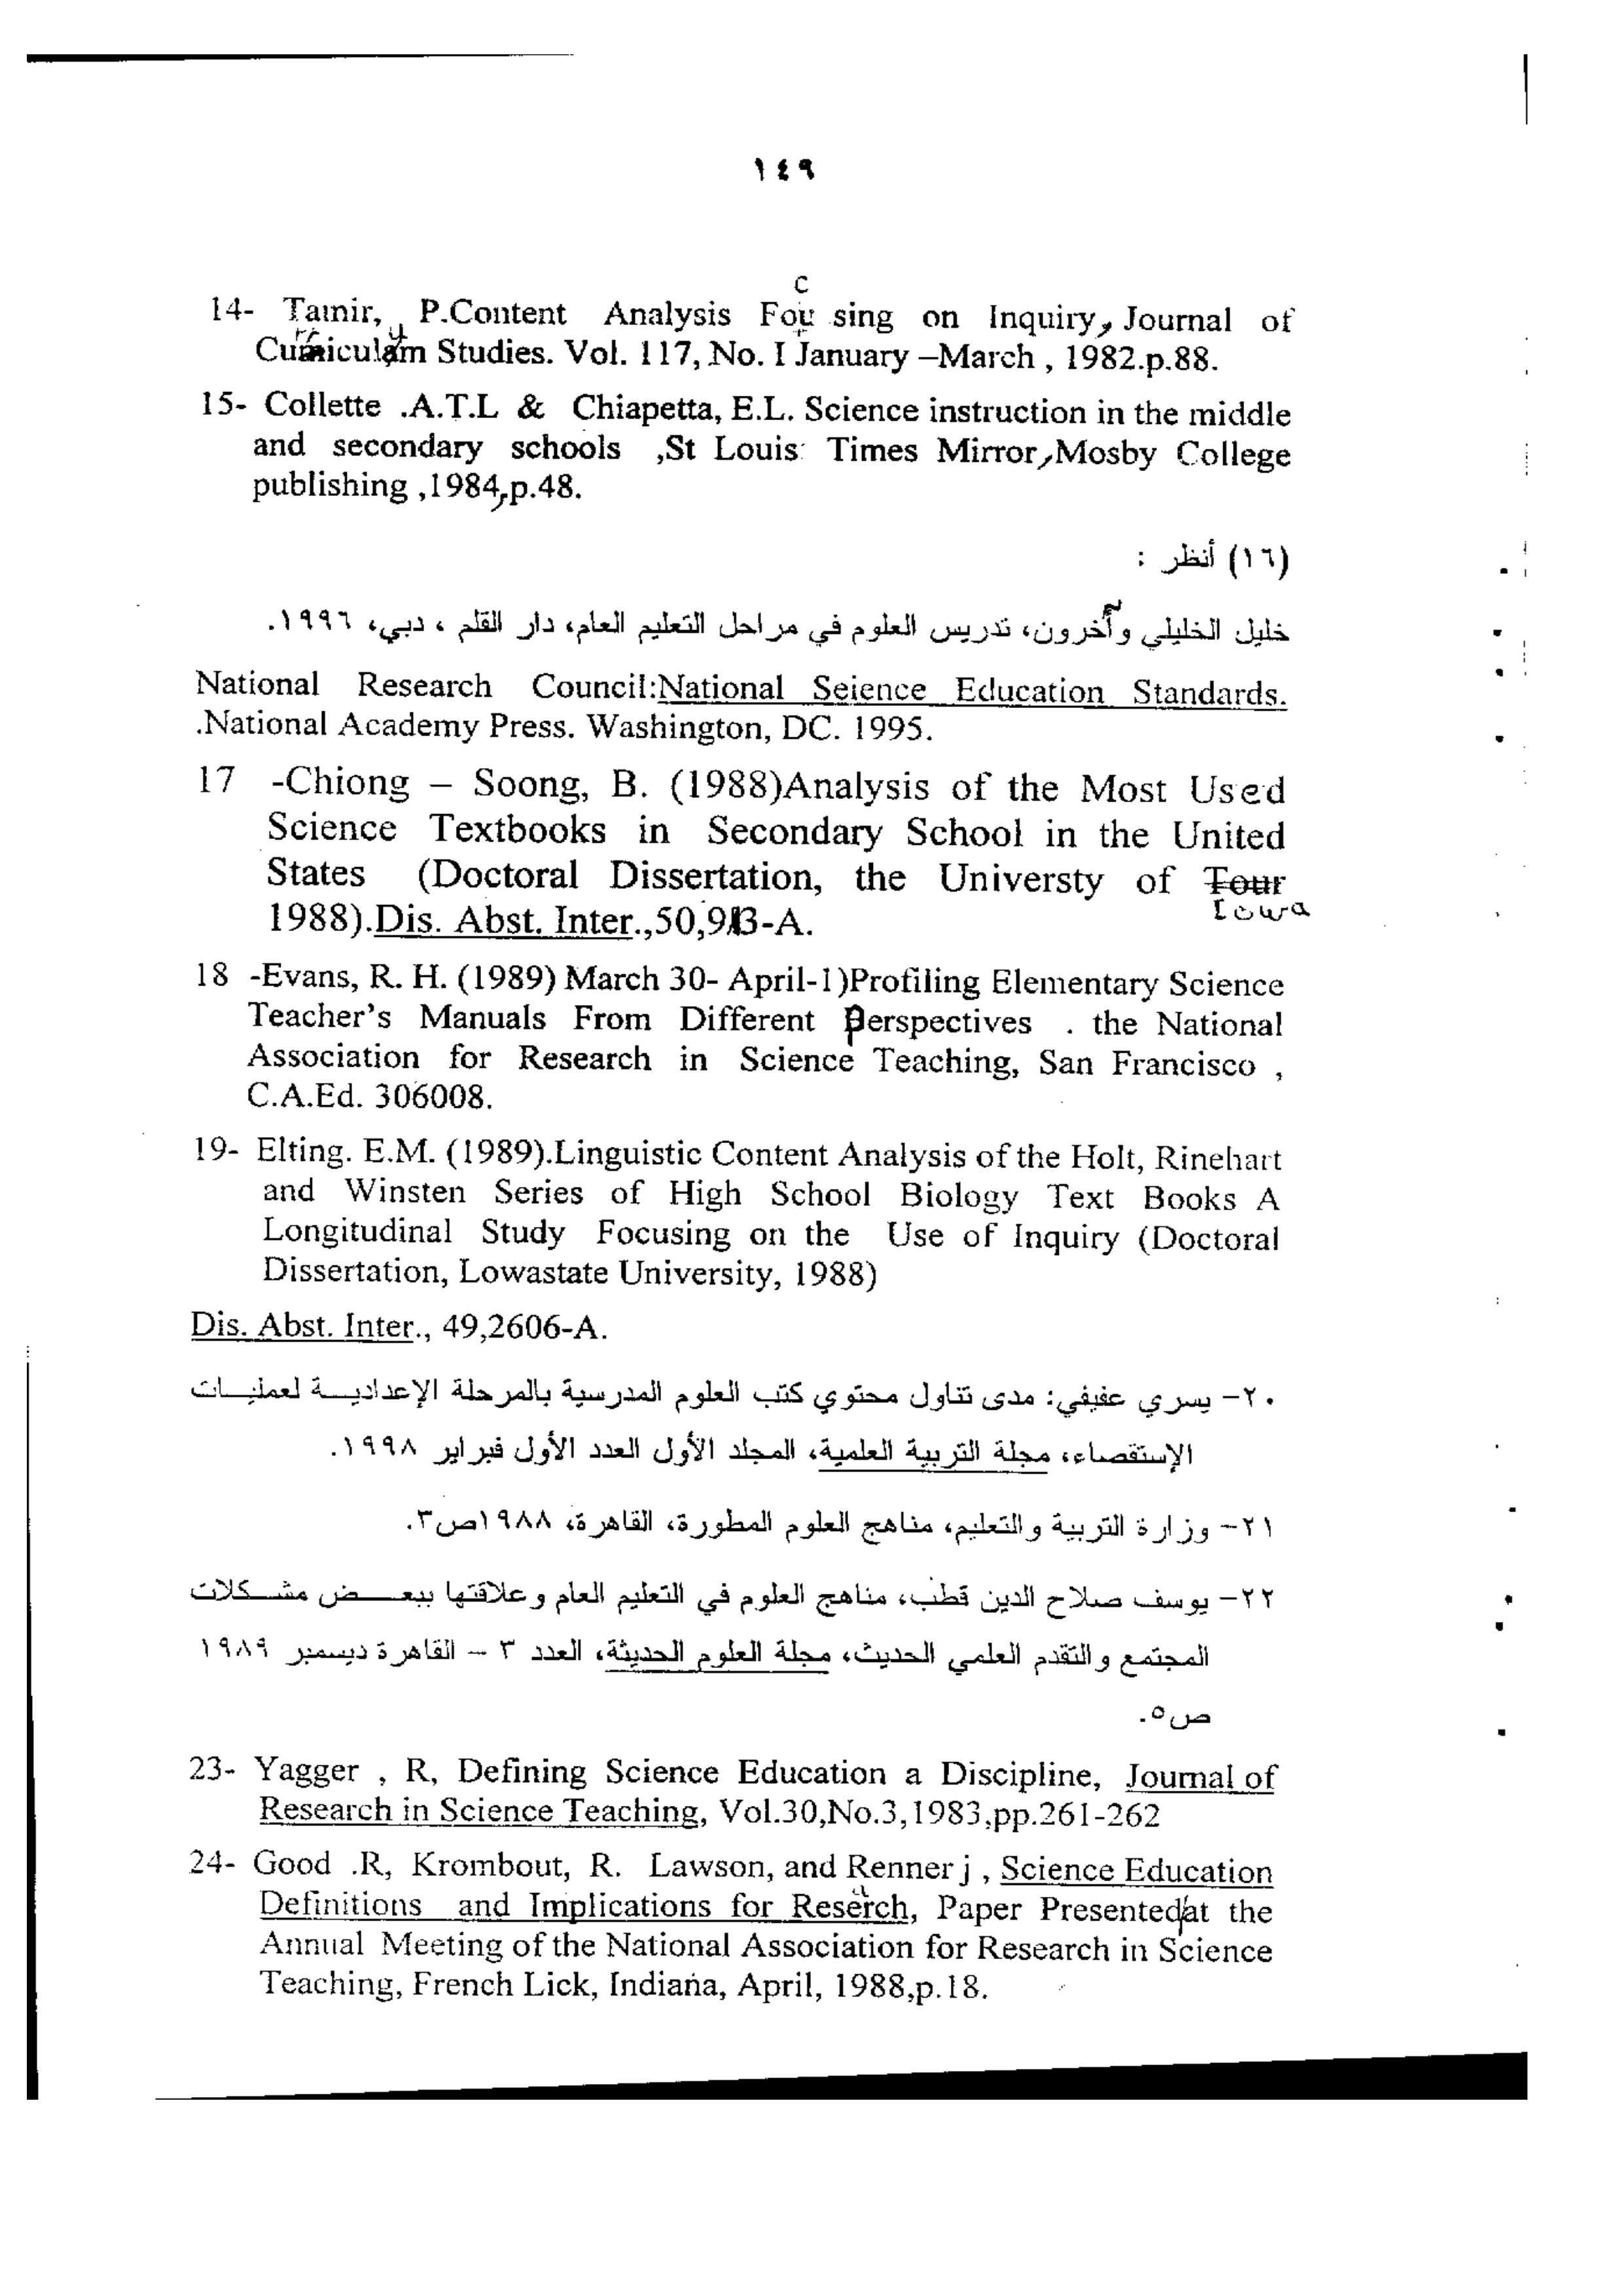 ١٤٩
c
14- Tamir, P.Content Analysis Fou sing on Inquiry, Journal of
Curriculum Studies. Vol. 117, No. I January –March , 1982.p.88.
15- Collette .A.T.L & Chiapetta, E.L. Science instruction in the middle
and secondary schools ,St Louis: Times Mirror,Mosby College
publishing ,1984,p.48.
(١٦) أنظر :
خليل الخليلي وآخرون، تدريس العلوم في مراحل التعليم العام، دار القلم ، دبي، ١٩٩٦.
National Research Council:National Seience Education Standards.
.National Academy Press. Washington, DC. 1995.
17 -Chiong – Soong, B. (1988)Analysis of the Most Used
Science Textbooks in Secondary School in the United
States (Doctoral Dissertation, the Universty of Tour
Iowa
1988).Dis. Abst. Inter.,50,
18 -Evans, R. H. (1989) March 30- April-1)Profiling Elementary Science
Teacher's Manuals From Different Perspectives . the National
Association for Research in Science Teaching, San Francisco ,
C.A.Ed. 306008.
19- Elting. E.M. (1989).Linguistic Content Analysis of the Holt, Rinehart
and Winsten Series of High School Biology Text Books A
Longitudinal Study Focusing on the Use of Inquiry (Doctoral
Dissertation, Lowastate University, 1988)
Dis. Abst. Inter., 49,2606-A.
٢٠- يسري عفيفي: مدى تناول محتوي كتب العلوم المدرسية بالمرحلة الإعداديـــة لعمليـات
الإستقصاء، مجلة التربية العلمية، المجلد الأول العدد الأول فبراير ١٩٩٨.
٢١- وزارة التربية والتعليم، مناهج العلوم المطورة، القاهرة، ١٩٨٨ص٣.
٢٢- يوسف صلاح الدين قطب، مناهج العلوم في التعليم العام وعلاقتها ببعـــض مشـكلات
المجتمع والتقدم العلمي الحديث، مجلة العلوم الحديثة، العدد ٣ – القاهرة ديسمبر ١٩٨٩
ص٥.
23- Yagger , R, Defining Science Education a Discipline, Journal of
Research in Science Teaching, Vol.30,No.3,1983,pp.261-262
24- Good .R, Krombout, R. Lawson, and Renner j , Science Education
Definitions and Implications for Reserch, Paper Presented at the
Annual Meeting of the National Association for Research in Science
Teaching, French Lick, Indiana, April, 1988,p.18.